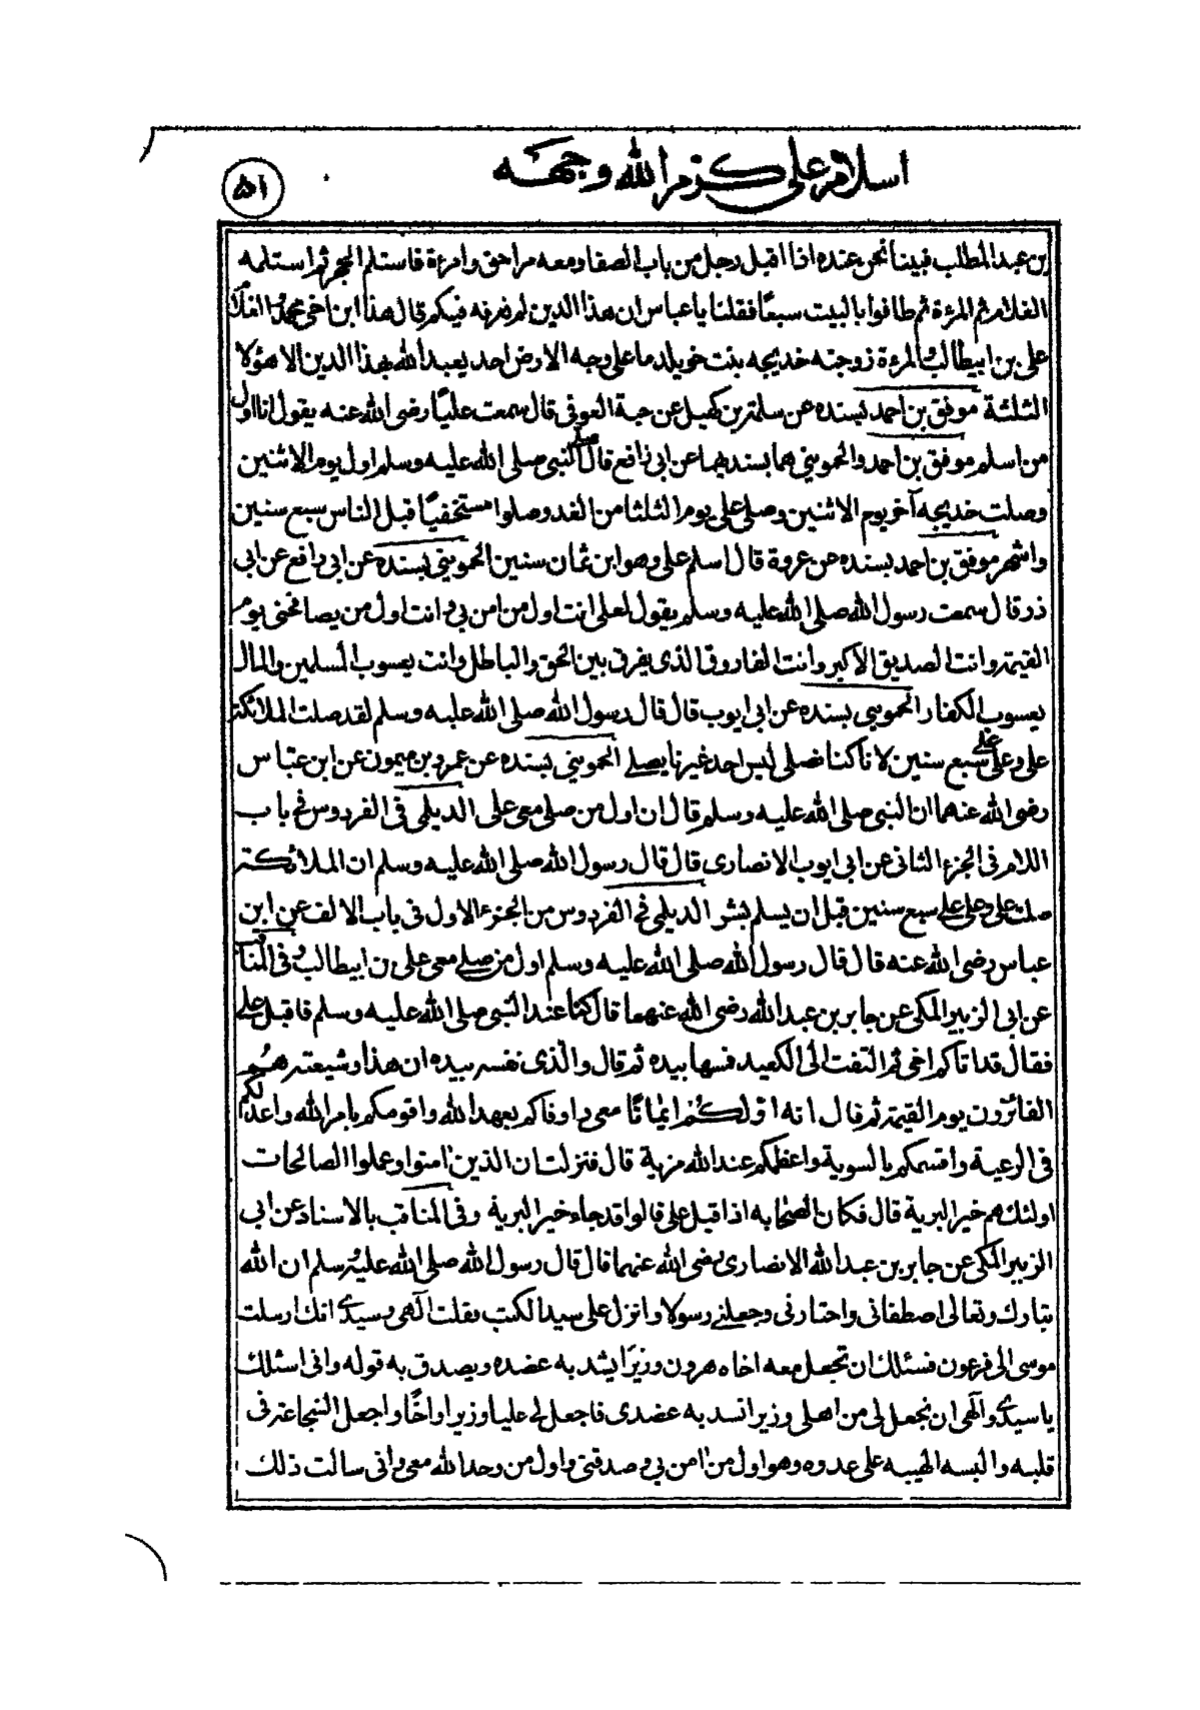 اسلام علي كرم الله وجهه
٥١
بن عبد المطلب فبينا نحن عنده اذا اقبل رجل من باب الصفا ومعه مراحق وامرءة فاستلم الحجر ثم استلمه
الغلام ثم المرءة ثم طافوا بالبيت سبعًا فقلنا يا عباس ان هذا الدين لم نعرفه فيكم قال هذا ابن اخي محمد والغلام
علي بن ابيطالب والمرءة زوجته خديجه بنت خويلد ما على وجه الارض احد يعبد الله بهذا الدين الا هؤلا
الثلثة موفق بن احمد بسنده عن سلمة بن كهيل عن حبة العوفي قال سمعت عليًا رضى الله عنه يقول انا اول
من اسلم موفق بن احمد والحمويني هما بسنديهما عن ابي رافع قال صلى النبي صلى الله عليه وسلم اول يوم الاثنين
وصلت خديجه آخر يوم الاثنين وصلى علي يوم الثلثا من الغد وصلوا مستخفيًا قبل الناس سبع سنين
واشهر موفق بن احمد بسنده عن عروة قال اسلم علي وهو ابن ثمان سنين الحمويني بسنده عن ابي رافع عن ابي
ذر قال سمعت رسول الله صلى الله عليه وسلم يقول لعلي انت اول من امن بي وانت اول من يصافحني يوم
القيمة وانت الصديق الاكبر وانت الفاروق الذى يفرق بين الحق والباطل وانت يعسوب المسلمين والمال
يعسوب الكفار الحمويني بسنده عن ابي ايوب قال قال رسول الله صلى الله عليه وسلم لقد صلت الملائكة
علي وعلى علي سبع سنين لانا كنا نصلى ليس احد غيرنا يصلي الحمويني بسنده عن عمرو بن ميمون عن ابن عباس
رضى الله عنهما ان النبي صلى الله عليه وسلم قال ان اول من صلى معي علي الديلمي في الفردوس في باب
اللام في الجزء الثانى عن ابي ايوب الانصارى قال قال رسول الله صلى الله عليه وسلم ان الملائكة
صلت علي وعلى علي سبع سنين قبل ان يسلم بشر الديلمي في الفردوس من الجزء الاول في باب الالف عن ابن
عباس رضى الله عنه قال قال رسول الله صلى الله عليه وسلم اول من صلى معي علي بن ابيطالب وفي المناقب
عن ابي الزبير المكي عن جابر بن عبد الله رضى الله عنهما قال كنا عند النبي صلى الله عليه وسلم فاقبل علي
فقال قد اتاكم اخي ثم التفت الى الكعبة فمسها بيده ثم قال والذى نفسي بيده ان هذا وشيعته هم
الفائزون يوم القيمة ثم قال انه اولكم ايمانا معي واوفاكم بعهد الله واقومكم بامر الله واعدلكم
في الرعية واقسمكم بالسوية واعظمكم عند الله مزية قال فنزلت ان الذين امنوا وعملوا الصالحات
اولئك هم خير البرية قال فكان الصحابه اذا اقبل علي قالوا قد جاء خير البرية وفي المناقب بالاسناد عن ابي
الزبير المكي عن جابر بن عبد الله الانصارى رضى الله عنهما قال قال رسول الله صلى الله عليه وسلم ان الله
تبارك وتعالى اصطفانى واختارنى وجعلني رسولا وانزل علي سيد الكتب فقلت آلهى وسيدي انك ارسلت
موسى الى فرعون فسئلك ان تجعل معه اخاه هرون وزيرًا يشد به عضده ويصدق به قوله وانى اسئلك
يا سيدي وآلهى ان تجعل لى من اهلى وزيرا تشد به عضدى فاجعل لي عليا وزيرا واخًا واجعل الشجاعة فى
قلبه والبسه الهيبه على عدوه وهو اول من امن بي وصدقنى واول من وحد الله معي وانى سالت ذلك